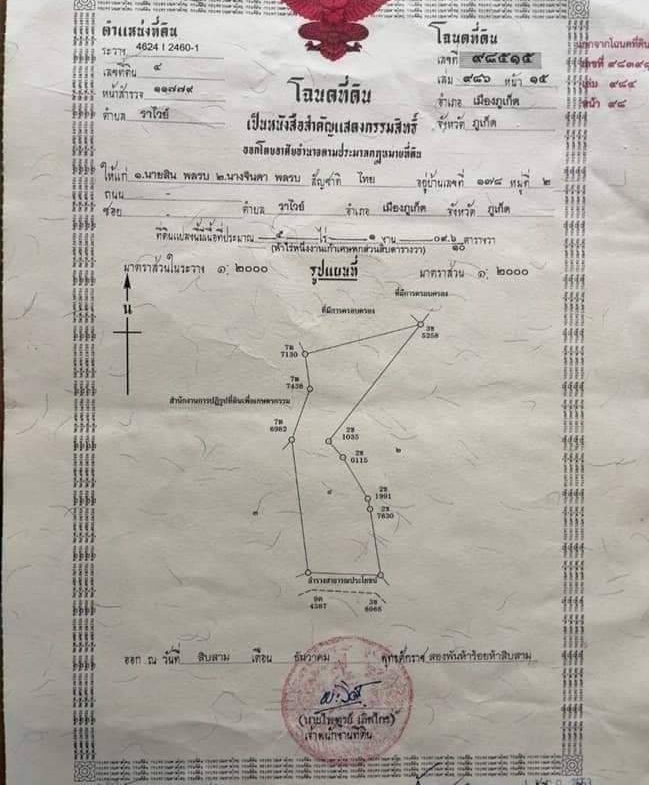 ตำแหน่งที่ดิน
ระวาง 4624 I 2460-1
เลขที่ดิน ๔
หน้าสำรวจ ๑๑๗๗๙
ตำบล ราไวย์
โฉนดที่ดิน
เลขที่ ๙๘๕๑๕
เล่ม ๙๘๖ หน้า ๑๕
อำเภอ เมืองภูเก็ต
จังหวัด ภูเก็ต
โฉนดที่ดิน
เป็นหนังสือสำคัญแสดงกรรมสิทธิ์
ออกโดยอาศัยอำนาจตามประมวลกฎหมายที่ดิน
ให้แก่ ๑.นายสิน พลรบ ๒.นางจินดา พลรบ สัญชาติ ไทย อยู่บ้านเลขที่ ๑๗๘ หมู่ที่ ๒
ถนน -
ซอย - ตำบล ราไวย์ อำเภอ เมืองภูเก็ต จังหวัด ภูเก็ต
ที่ดินแปลงนี้มีเนื้อที่ประมาณ ๕ ไร่ ๑ งาน ๐๙.๖ ตารางวา
๑๐
(ห้าไร่หนึ่งงานเก้าเศษหกส่วนสิบตารางวา)
มาตราส่วนในระวาง ๑: ๒๐๐๐
รูปแผนที่
มาตราส่วน ๑: ๒๐๐๐
น
ที่มีการครอบครอง
ที่มีการครอบครอง
3ช
5258
7ต
7130
7ต
7438
สำนักงานการปฏิรูปที่ดินเพื่อเกษตรกรรม
7ต
6982
2ช
1035
2ช
0115
๒
๔
2ช
1991
2ช
7630
๓
ลำรางสาธารณประโยชน์
4387
ออก ณ วันที่ สิบสาม เดือน ธันวาคม พุทธศักราช สองพันห้าร้อยห้าสิบสาม
เจ้าพนักงานที่ดิน